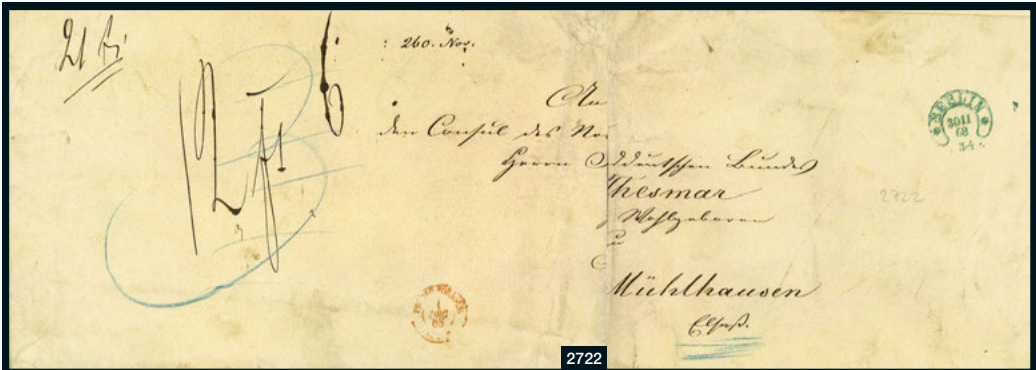 21
12
6
: 260. Nov.
An
den Consul des No
Herrn ddeutschen Bundes
Thesmar
Wohlgeboren
u
Mühlhausen
Elsaß.
BERLIN
30 11
68
3-4
1
68
2722
2722